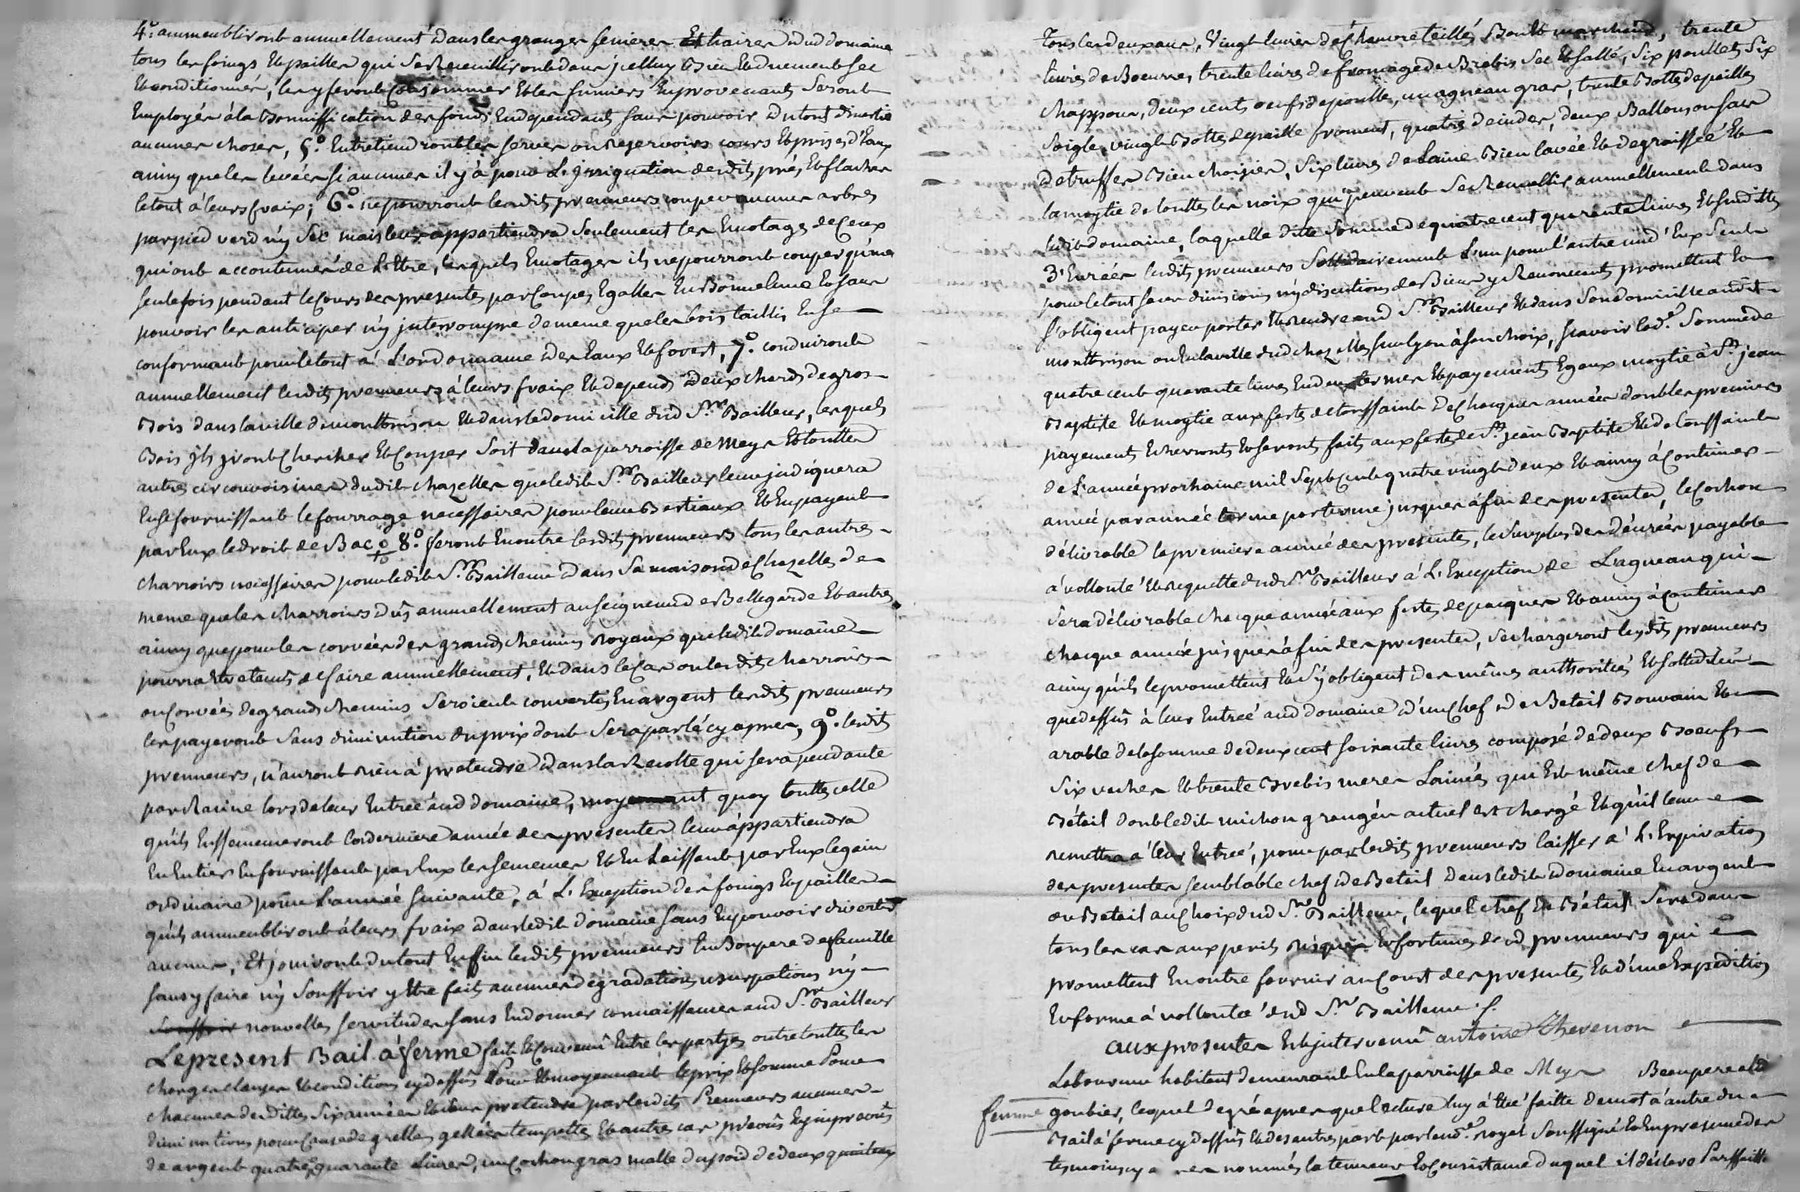 4.° ammeubliront annuellement dans les granges fenieres Et haires dud domaine
tous les foings Et pailles qui se Recueilliront dans jcelluy Bien Et duement sec
Et conditionnés, les y feront Consommer Et les fumiers En provenants seront
Employés à la Bonniffication des fonds En dependants sans pouvoir du tout divertir
aucunes choses, 5.° Entretiendront les serves ou Reservoirs cours Et prises d'Eaux
ainsy que les levées si aucunes il y à pour L'jrrigation desdits prés Et flacher
le tout à leurs fraix; 6.° ne pourront lesdits prenneurs couper aucuns arbres
par pied verd n'y sec mais leur appartiendra seulement les Emotages de Ceux
qui ont accoutumés de L'Etre, lesquels Emotages ils ne pourront couper qu'une
seule fois pendant le Cours des presentes par Coupes Egalles En Bonne lune Et sans
pouvoir les anticiper n'y jnterrompre de meme que les bois taillis En se
conformant pour le tout à L'ordonnance des Eaux Et forest, 7.° conduiront
annuellement lesdits prenneurs à leurs fraix Et depends deux chards de gros
Bois dans la ville de montbrison Et dans le domicille dud S.r Bailleur, lesquels
Bois jls jront Chercher Et Couper soit dans la parroisse de Meys Et touttes
autres circonvoisines dudit chazelles que ledit S.r Bailleur leur jndiquera
En se fournissant le fourrage necessaires pour leurs Bestiaux Et En payant
par Eux le droit de Bac 8.° seront En outre lesdits prenneurs tous les autres
charroirs necessaires pour ledit S.r Bailleur dans sa maison de Chazelles de
meme que les charroirs dûs annuellement au seigneur de Bellegarde Et autres
ainsy que pour les corvées des grands chemins Royaux que ledit domaine
pourra Etre tenus de faire annuellement, Et dans le Cas ou lesdits charroirs
ou Corvées de grands chemins seroient convertis En argent lesdits prenneurs
les payeront sans diminution du prix dont sera parlé cy apres, 9.° lesdits
prenneurs, n'auront Rien à pretendre dans la Recolte qui sera pendante
par Racine lors de leur Entreé aud domaine, moyennant quoy toutte celle
qu'ils Enssemenceront la derniere année des presentes leur appartiendra
En Entier En fournissant par Eux les semences Et En Laissant par Eux le gain
ordinaire pour L'année suivante, à L'Exception des foings Et pailles
qu'ils ammeubliront à leurs fraix dans ledit domaine sans En pouvoir divertir
aucune, Et jouiront du tout Enfin lesdits prenneurs En Bon pere de famille
sans y faire n'y souffrir y Etre fait aucunes dégradations usurpations n'y
nouvelles servitudes sans En donner connaissance aud S.r Bailleur
Le present Bail à ferme fait Et Convenû Entre les partyes outre touttes les
charges clauses Et conditions cy dessûs Pour Et moyennant le prix Et somme Pour
chacune desdittes six années Et sans pretendre par lesdits Prenneurs aucunes
diminutions pour Causes de grelles gellées tempestes Et autres cas préveûs Et jmpreveûs
de argent quatre quarante Livres, un Cochon gras malle du poid de deux quintaux
tous les deux ans, Vingt livres de Chanvre teillés Bon Et marchand, trente
livres de Boeurre, trente livres de fromage de Brebis sec Et sallé, six poullets six
chappons, deux cents oeufs de poulle, un agneau gras, trente Bottes de paille
soigle, vingt Bottes de paille froment, quatre dindes, deux Ballons ou sacs
de truffes Bien choisies, six livres de Laine Bien lavée Et degraissée Et
la moytié de touttes les noix qui peuvent se Recueillir annuellement dans
ledit domaine, laquelle ditte somme de quatre cent quarante livres Et susdittes
D'Enrées lesdits prenneurs sollidairement L'un pour l'autre un d'Eux seul
pour le tout sans divisions n'y discutions de Biens y Renoncent promettent Et
s'obligent payer porter Et Rendre aud S.r Bailleur Et dans son domicille audit
montbrison ou En la ville dud chazelles sur Lyon à son choix, sçavoir lad.e somme de
quatre cent quarante livres En deux termes Et payements Egeaux moytié à S.t jean
Baptiste Et moytié aux festes de toussaint de Chacques années dont les premiers
payements Echerront Et seront faits aux festes de S.t jean Baptiste Et de toussaint
de L'année prochaine mil sept Cent quatre vingt deux Et ainsy à Continuer
année par année terme par terme jusques à fin des presentes, le Cochon
délivrable la premiere année des presentes, le surplus des dénrées payable
à vollonté Et Requette dud S.r Bailleur à L'Exception de L'agneau qui
sera délivrable chacque années aux festes de pacques Et ainsy à Continuer
chacque année jusques à fin des presentes, se chargeront lesdits prenneurs
ainsy qu'ils le promettent Et s'y obligent des mêmes authorités Et sollidité
que dessûs à leur Entreé aud domaine d'un Chef de Betail Bouvain Et
arable de la somme de deux cent soixante livres composé de deux Boeufs
six vaches Et trente Brebis meres Lainées qui Est même chef de
Bétail dont ledit michon granger actuel est chargé Et qu'il leur
remettra à leur Entreé, pour par lesdits prenneurs laisser à L'Expiration
des presentes semblable chef de Betail dans ledit domaine En argent
ou Betail au Choix dud S.r Bailleur, lequel Chef de Bétail sera dans
tous les cas aux perils Risques Et fortunes desd prenneurs qui
promettent En outre fournir au Court des presentes Et d'une Expedition
En forme à vollonté dud S.r Bailleur.
aux presentes Est jntervenû antoine Thevenon
Laboureur habitant demeurant En la parroisse de Meys Beaupere de la
femme goubier, lequel de gré apres que lecture luy à Etée faitte de mot à autre du
Bail à ferme cy dessûs Et des autres part par led.e royal soussigné Et En presence des
témoins cy apres nommés la teneur Et Consistance duquel il à déclaré Parffaitt.